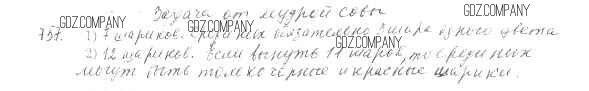 Задача от мудрой совы
GDZ.COMPANY
GDZ.COMPANY
GDZ.COMPANY
751. 1) 7 шариков. Среди них обязательно 3 шара одного цвета
GDZ.COMPANY
2) 12 шариков. Если вынуть 11 шаров, то среди них
могут быть только чёрные и красные шарики.
GDZ.COMPANY